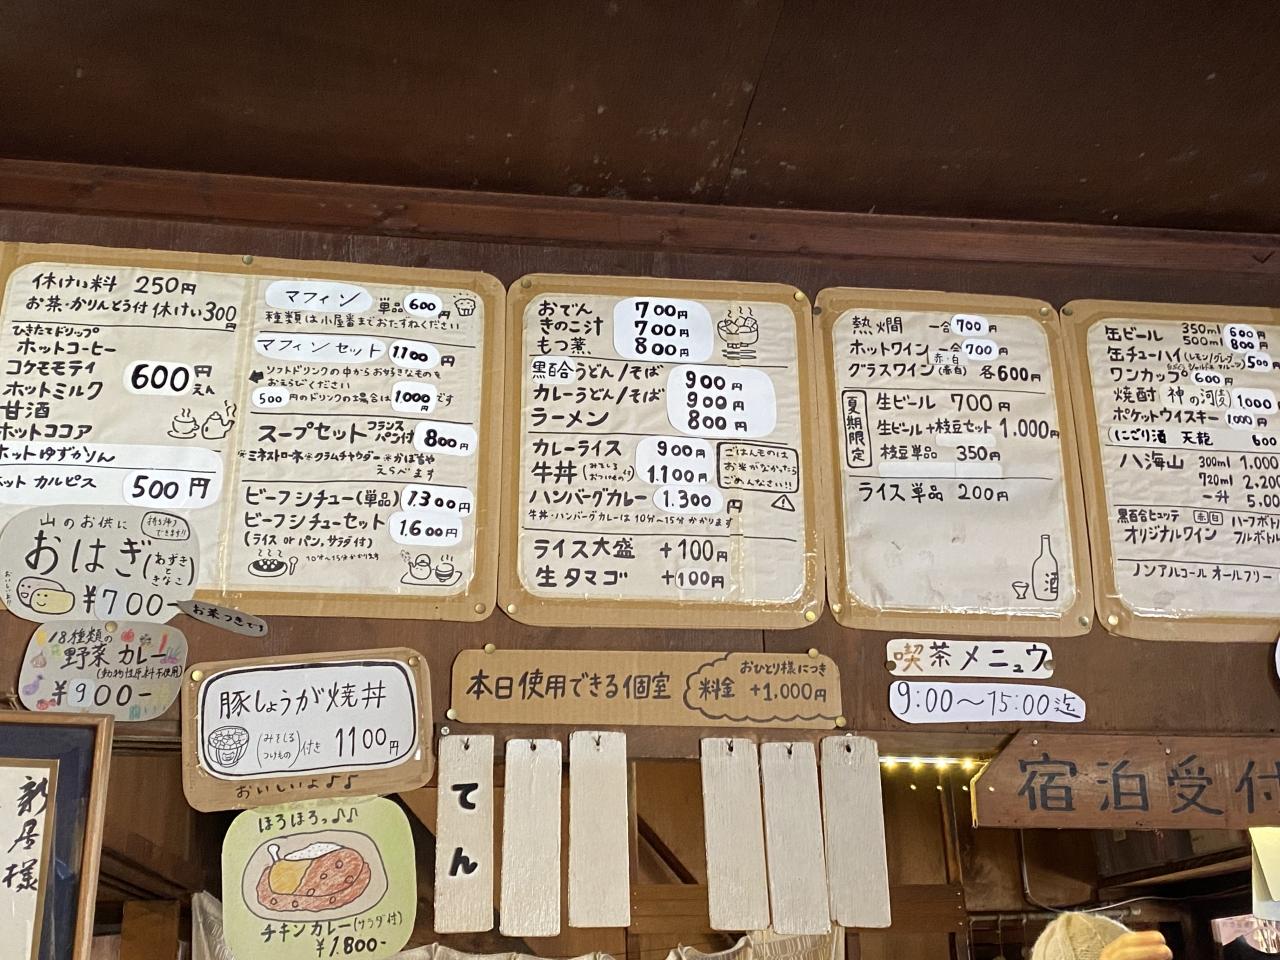 休けい料 250円
お茶・かりんとう付 休けい300円
ひきたてドリップ
ホットコーヒー
コケモモティ
ホットミルク
甘酒
ホットココア
600円
えん
ホットゆずかりん
ホット カルピス
500円
山のお供に
持ち歩きできます!!
おはぎ(あずきときなこ)
おいしいよ!!
¥700-
お茶つきです
18種類の
野菜カレー
(動物性原料不使用)
¥900-
マフィン 単品600円
種類は小屋番までおたずねください
マフィンセット 1100円
ソフトドリンクの中からお好きなものを
おえらびください
500円のドリンクの場合は1000円です
スープセット フランスパン付 800円
*ミネストローネ*クラムチャウダー*かぼちゃ
えらべます
ビーフシチュー(単品) 1300円
ビーフシチューセット 1.600円
(ライス or パン,サラダ付)
10分~15分かかります
おでん 700円
きのこ汁 700円
もつ煮 800円
黒百合うどん/そば 900円
カレーうどん/そば 900円
ラーメン 800円
カレーライス 900円
牛丼(みそしるおつけもの付) 1.100円
ハンバーグカレー 1.300円
牛丼・ハンバーグカレーは10分~15分かかります
ごはんものは
お米がなかったら
ごめんなさい!!
ライス大盛 +100円
生タマゴ +100円
熱燗 一合700円
ホットワイン 赤・白 一合700円
グラスワイン(赤白) 各600円
夏期限定
生ビール 700円
生ビール+枝豆セット 1.000円
枝豆単品 350円
ライス単品 200円
酒
缶ビール 350ml 600円
500ml 800円
缶チューハイ 500円
ワンカップ 600円
焼酎 神の河 1000
ポケットウイスキー 1000円
にごり酒 天龍 600
八海山 300ml 1.000
720ml 2.200
一升 5.00
黒百合ヒュッテ 赤白 ハーフボト
オリジナルワイン フルボトル
ノンアルコール オールフリー
豚しょうが焼丼
(みそしるつけもの)付き 1100円
おいしいよ♪♪
本日使用できる個室
おひとり様につき
料金 +1.000円
喫茶メニュウ
9:00〜15:00迄
てん
宿泊受付
ほろほろっ♪♪
チキンカレー(サラダ付)
¥1.800-
新居様